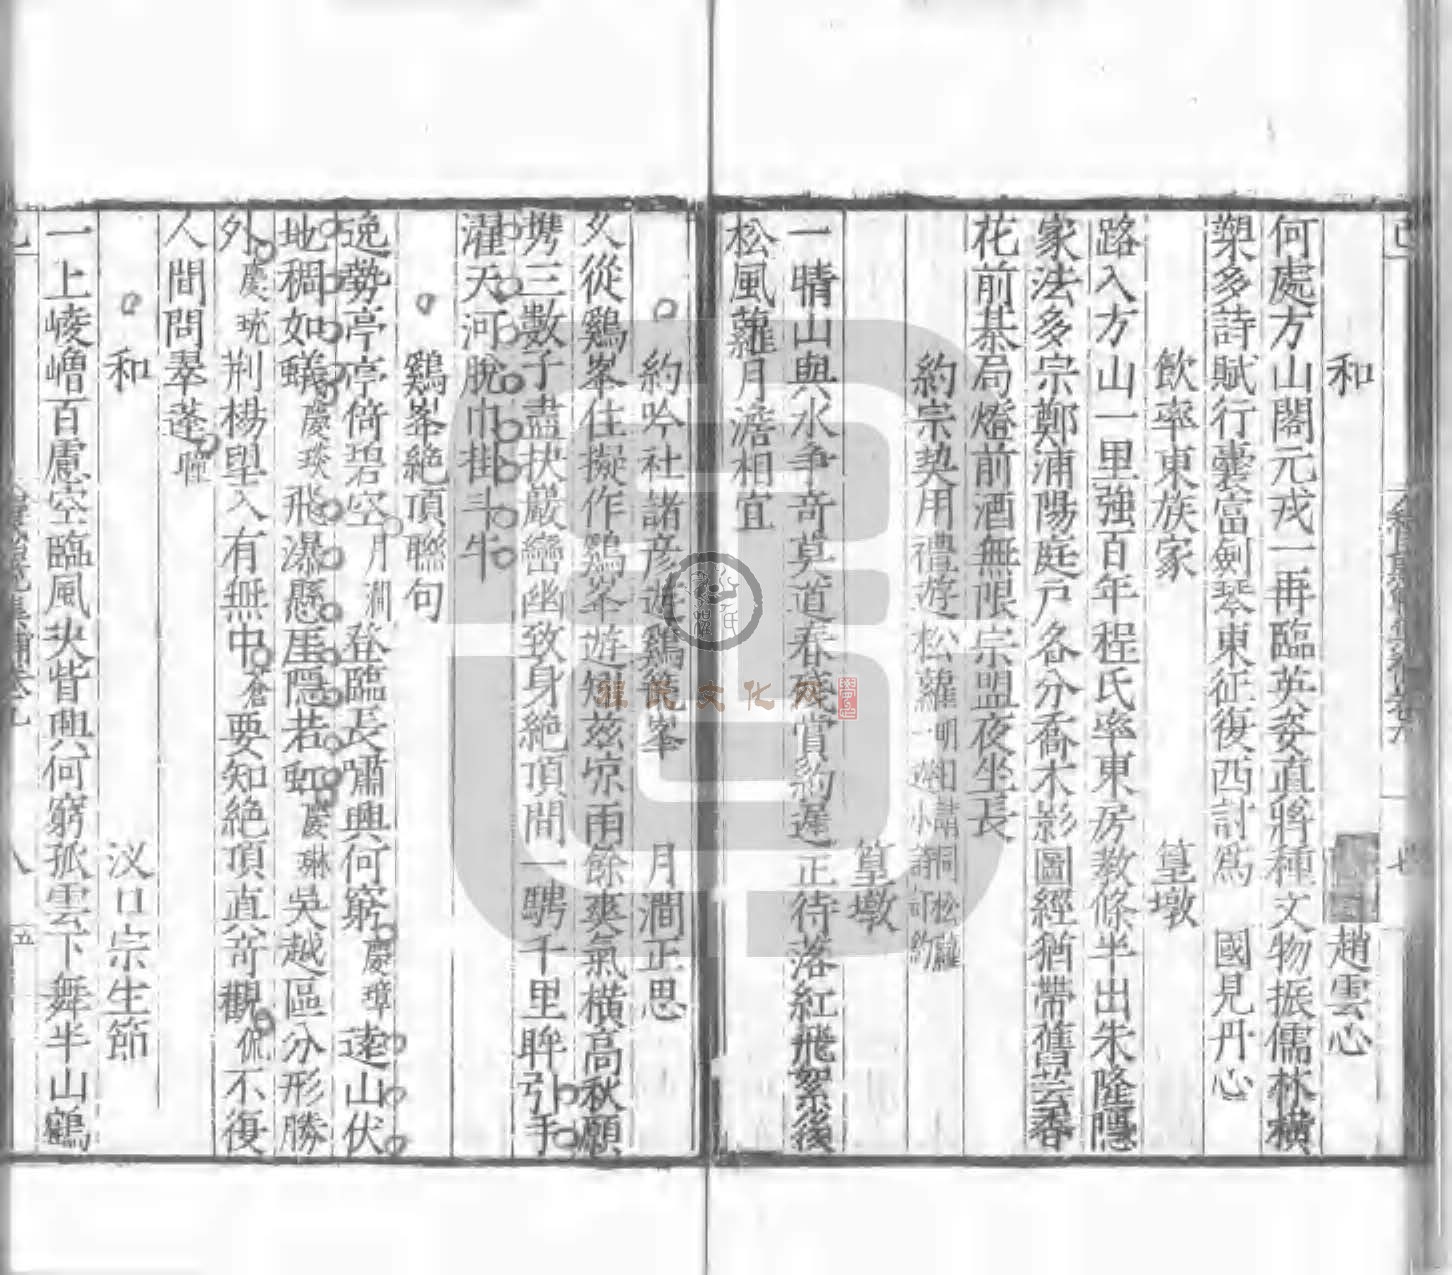 和
趙雲心
何處方山閣元戎一再臨英姿直將種文物振儒林橫
槊多詩賦行囊富劍琴東征復西討爲 國見丹心
飲率東族家
篁墩
路入方山一里強百年程氏率東房教條半出朱隆隱
家法多宗鄭浦陽庭戶各分喬木影圖經猶帶舊芸香
花前棊局燈前酒無限宗盟夜坐長
約宗契用禮遊松蘿
篁墩
一晴山與水爭奇莫道春賞約遲正待落紅飛絮後
松風蘿月澹相宜
約吟社諸彥遊鷄峯
月澗正思
久從鷄峯住擬作鷄峯遊矧茲涼雨餘爽氣橫高秋願
携三數子盡扶嚴巒幽致身絶頂間一騁千里眸引手
濯天河脫巾掛斗牛
鷄峯絶頂聯句
逸勢亭亭倚碧空月澗登臨長嘯興何窮慶璋遠山伏
地稠如蟻慶琰飛瀑懸厓隱若虹慶琳吳越區分形勝
外慶珫荆楊望入有無中倉要知絶頂真竒觀侃不復
人間問翠蓬
和
汊口宗生節
一上崚嶒百慮空臨風决眥興何窮孤雲下舞半山鶴
程氏文化网